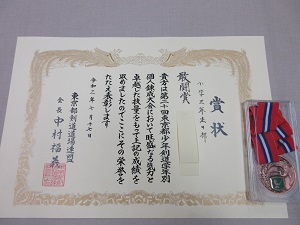 賞状
小学三年生の部
敢闘賞
貴方は第二十回東京都少年剣道学年別
個人錬成大会において旺盛なる気力と
卓越した技量をもって上記の成績を
収めましたのでここにその栄誉を
たたえ表彰します
東京都剣道道場連盟
会長 中村福義